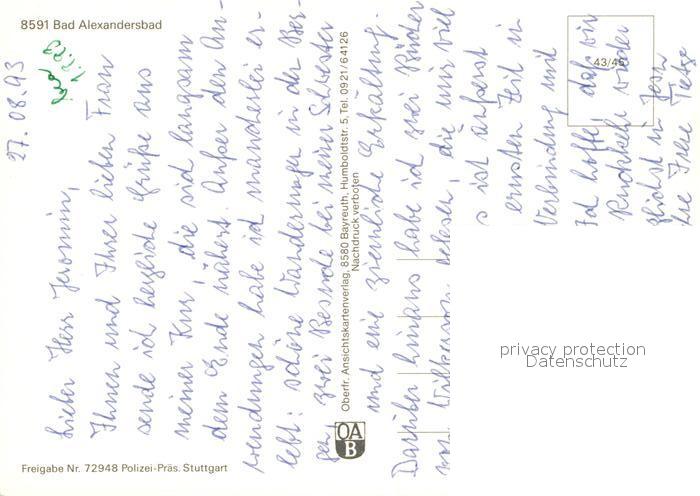 8591 Bad Alexandersbad
27.08.93
Lieber Herr Jeromin,
Ihnen und Ihrer lieben Frau
sende ich herzliche Grüße aus
meiner Kur, die sich langsam
dem Ende nähert. Außer den An-
wendungen habe ich mancherlei er-
lebt: schöne Wanderungen in den Ber-
gen, zwei Besuche bei meiner Schwester
und eine ziemliche Erkältung.
Darüber hinaus habe ich zwei Bücher
von Wilkerson gelesen, die uns viel
s ist äußerst
ernsten Zeit in
Verbindung mit
Ich hoffe, daß wir
Rückkehr wieder
in Jesu
Ihre
Oberfr. Ansichtskartenverlag, 8580 Bayreuth, Humboldtstr. 5, Tel. 0921/64126
Nachdruck verboten
OA
B
43/45
privacy protection
Datenschutz
Freigabe Nr. 72948 Polizei-Präs. Stuttgart